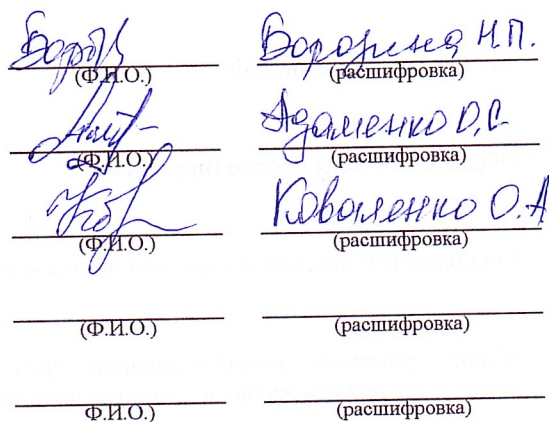 Бороз Бородина Н.П.
(Ф.И.О.) (расшифровка)
Адаменко О.С.
(Ф.И.О.) (расшифровка)
Коваленко О.А
(Ф.И.О.) (расшифровка)
(Ф.И.О.) (расшифровка)
(Ф.И.О.) (расшифровка)